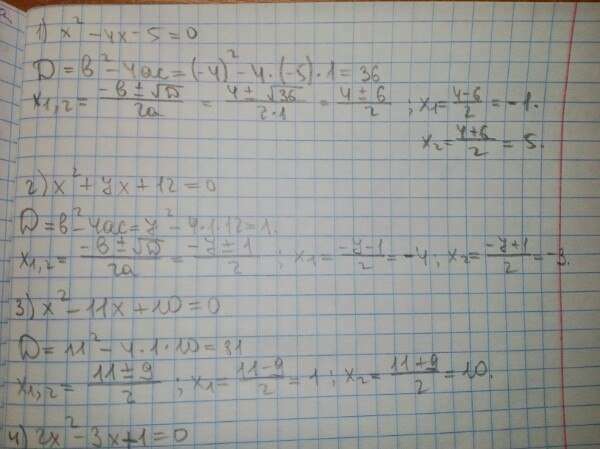 1) x² - 4x - 5 = 0
D = b² - 4ac = (-4)² - 4·(-5)·1 = 36
x₁,₂ = (-b ± √D)/2a = (4 ± √36)/(2·1) = (4 ± 6)/2 ; x₁ = (4-6)/2 = -1.
x₂ = (4+6)/2 = 5.
2) x² + 7x + 12 = 0
D = b² - 4ac = 7² - 4·1·12 = 1.
x₁,₂ = (-b ± √D)/2a = (-7 ± 1)/2 ; x₁ = (-7-1)/2 = -4; x₂ = (-7+1)/2 = -3.
3) x² - 11x + 10 = 0
D = 11² - 4·1·10 = 81
x₁,₂ = (11 ± 9)/2 ; x₁ = (11-9)/2 = 1; x₂ = (11+9)/2 = 10.
4) 2x² - 3x + 1 = 0